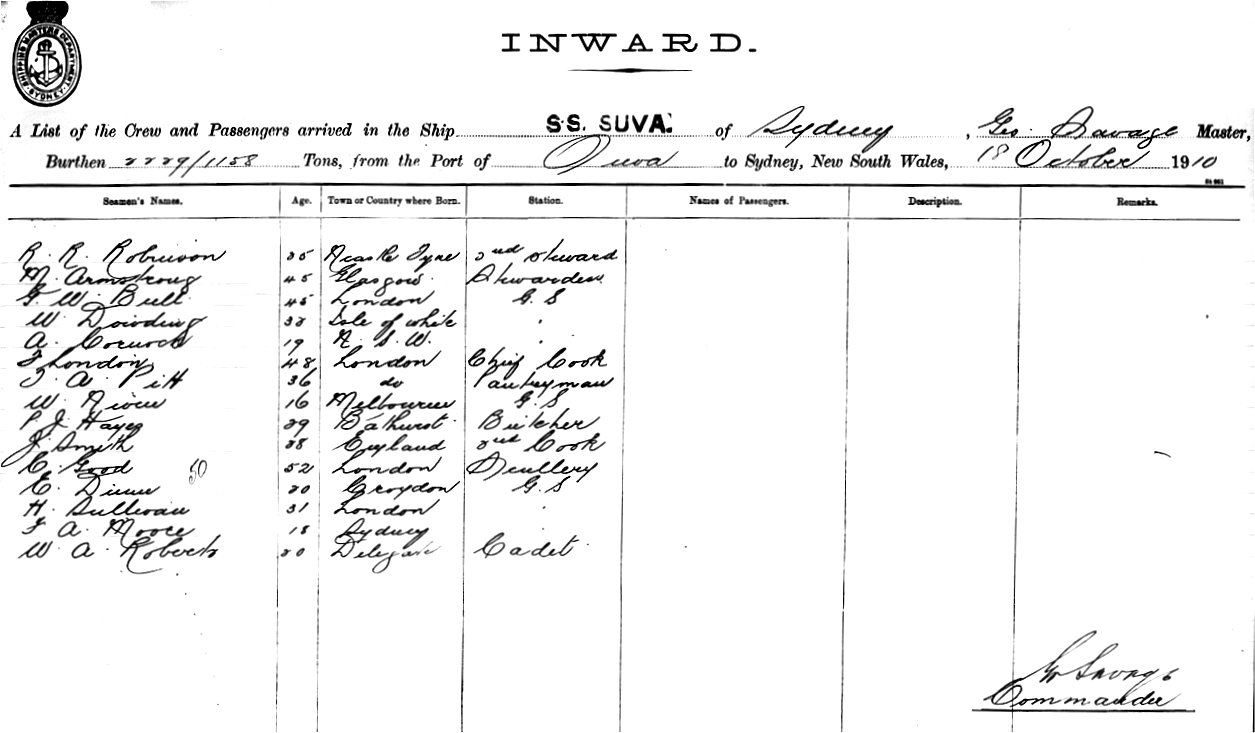 SHIPPING MASTERS DEPARTMENT SYDNEY
INWARD.
A List of the Crew and Passengers arrived in the Ship S.S. SUVA. of Sydney, Geo. Savage Master,
Burthen 2229/1158 Tons, from the Port of Suva to Sydney, New South Wales, 18 October 1910
Seamen's Names. Age. Town or Country where Born. Station. Names of Passengers. Description. Remarks.
R. R. Robinson 25 Ncastle Tyne 2nd Steward
M. Armstrong 45 Glasgow. Stewardess
G. W. Bull 45 London G. S
W. Dowding 32 Isle of white "
A. 19 N. S. W.
F London 48 London Chief Cook
T. A. Pitt 36 do Pantryman
W. Niven 16 Melbourne G. S
P. J. Hayes 29 Bathurst. Butcher
J. Smith 28 England 2nd Cook
C. Good 50 52 London Scullery
E. Dunn 20 Croydon G. S
H. Sullivan 31 London "
F. A. Moore 18 Sydney "
W. A. Roberts 20 Delegate Cadet.
G Savage
Commander